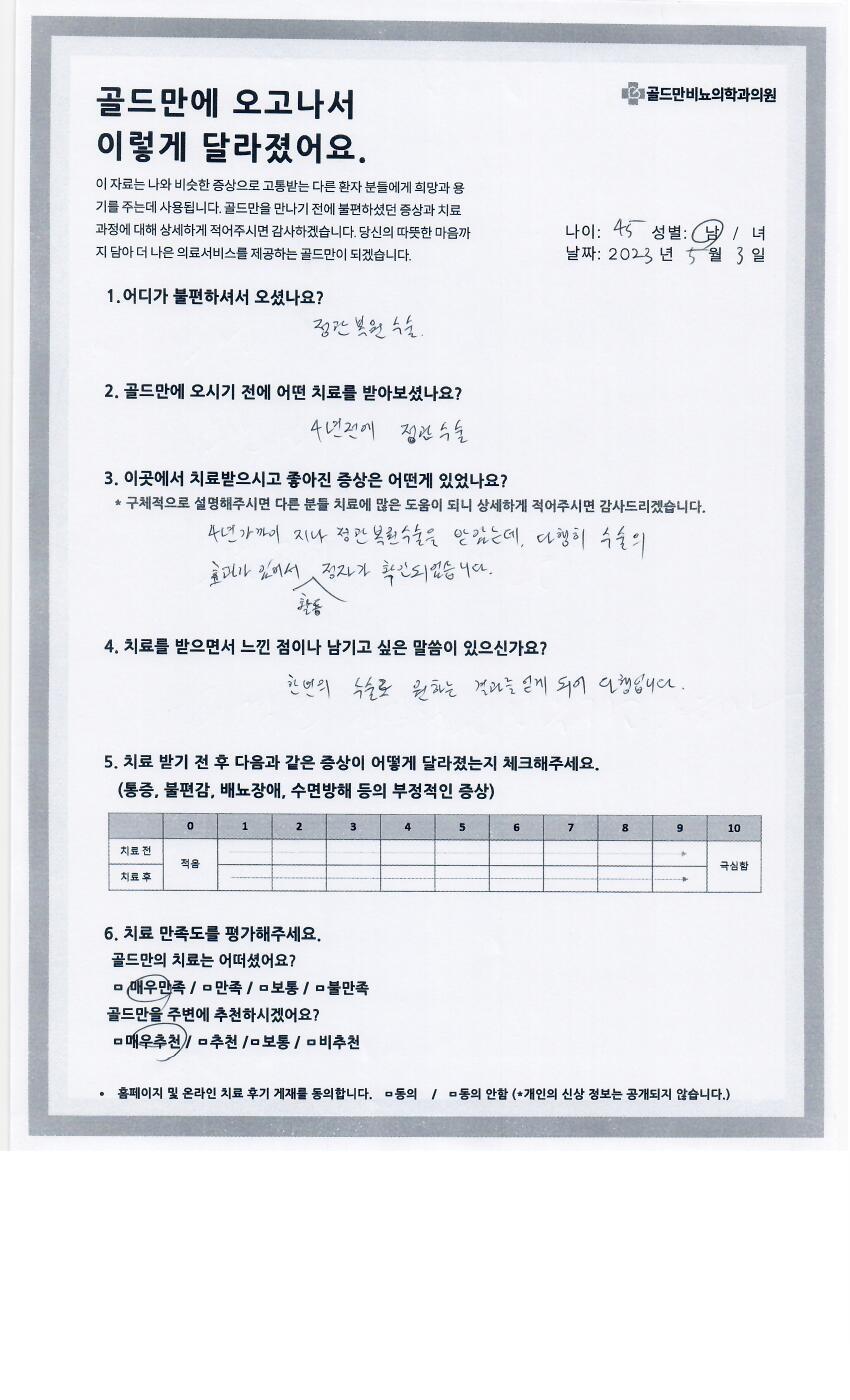 골드만에 오고나서
이렇게 달라졌어요.
골드만비뇨의학과의원
이 자료는 나와 비슷한 증상으로 고통받는 다른 환자 분들에게 희망과 용
기를 주는데 사용됩니다. 골드만을 만나기 전에 불편하셨던 증상과 치료
과정에 대해 상세하게 적어주시면 감사하겠습니다. 당신의 따뜻한 마음까
지 담아 더 나은 의료서비스를 제공하는 골드만이 되겠습니다.
나이: 45 성별: 남 / 녀
날짜: 2023 년 5 월 3 일
1.어디가 불편하셔서 오셨나요?
정관복원 수술.
2. 골드만에 오시기 전에 어떤 치료를 받아보셨나요?
4년전에 정관수술
3. 이곳에서 치료받으시고 좋아진 증상은 어떤게 있었나요?
* 구체적으로 설명해주시면 다른 분들 치료에 많은 도움이 되니 상세하게 적어주시면 감사드리겠습니다.
4년가까이 지나 정관복원수술을 받았는데, 다행히 수술의
효과가 있어서 정자가 확인되었습니다.
활동
4. 치료를 받으면서 느낀 점이나 남기고 싶은 말씀이 있으신가요?
한번의 수술로 원하는 결과를 얻게 되어 다행입니다.
5. 치료 받기 전 후 다음과 같은 증상이 어떻게 달라졌는지 체크해주세요.
(통증, 불편감, 배뇨장애, 수면방해 등의 부정적인 증상)
0 1 2 3 4 5 6 7 8 9 10
치료 전
적음 극심함
치료 후
6. 치료 만족도를 평가해주세요.
골드만의 치료는 어떠셨어요?
ㅁ 매우만족 / ㅁ만족 / ㅁ보통 / ㅁ불만족
골드만을 주변에 추천하시겠어요?
ㅁ매우추천 / ㅁ추천 /ㅁ보통 / ㅁ비추천
• 홈페이지 및 온라인 치료 후기 게재를 동의합니다. ㅁ동의 / ㅁ동의 안함 (*개인의 신상 정보는 공개되지 않습니다.)